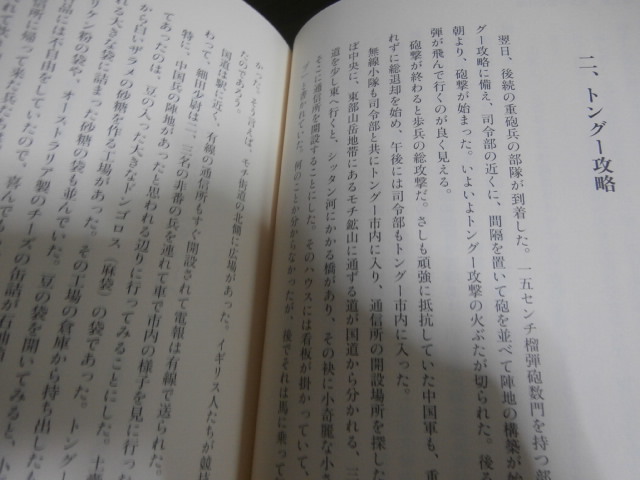 二、トングー攻略
翌日、後続の重砲兵の部隊が到着した。一五センチ榴弾砲数門を持つ部
グー攻略に備え、司令部の近くに、間隔を置いて砲を並べて陣地の構築が始
朝より、砲撃が始まった。いよいよトングー攻撃の火ぶたが切られた。後る
弾が飛んで行くのが良く見える。
砲撃が終わると歩兵の総攻撃だ。さしも頑強に抵抗していた中国軍も、重
れずに総退却を始め、午後には司令部もトングー市内に入った。
無線小隊も司令部と共にトングー市内に入り、通信所の開設場所を探した
ぼ中央に、東部山岳地帯にあるモチ鉱山に通ずる道が国道から分かれる、三
道を少し東へ行くと、シッタン河にかかる橋があり、その袂に小奇麗な小さ
そこに通信所を開設することにした。そのハウスには看板が掛かっていて、
と書かれていた。何のことか分からなかったが、後でそれは馬に乗って
かった。そういえば、モチ街道の北側に広場があった。イギリス人たちが競技
たのであろう。
国道は駅に近く、有線の通信所もすぐ開設されて電報は有線で送られた。
わって、細田少尉は二、三名の非番の兵を連れて車で市内の様子を見に行った
特に、中国兵の陣地があったと思われる辺りに行ってみることにした。土
てあったのは、豆の入った大きなドンゴロス（麻袋）の袋であった。トングー
から白いザラメの砂糖を作る工場があった。その工場の倉庫から持ち出したも
れる大きな袋に詰まった砂糖の袋も並んでいた。豆の袋を開いてみると、小
リケン粉の袋や、オーストラリア製のチーズの缶詰が石油缶
品には不自由をしていたので、喜んであ
所に帰って来た兵たち